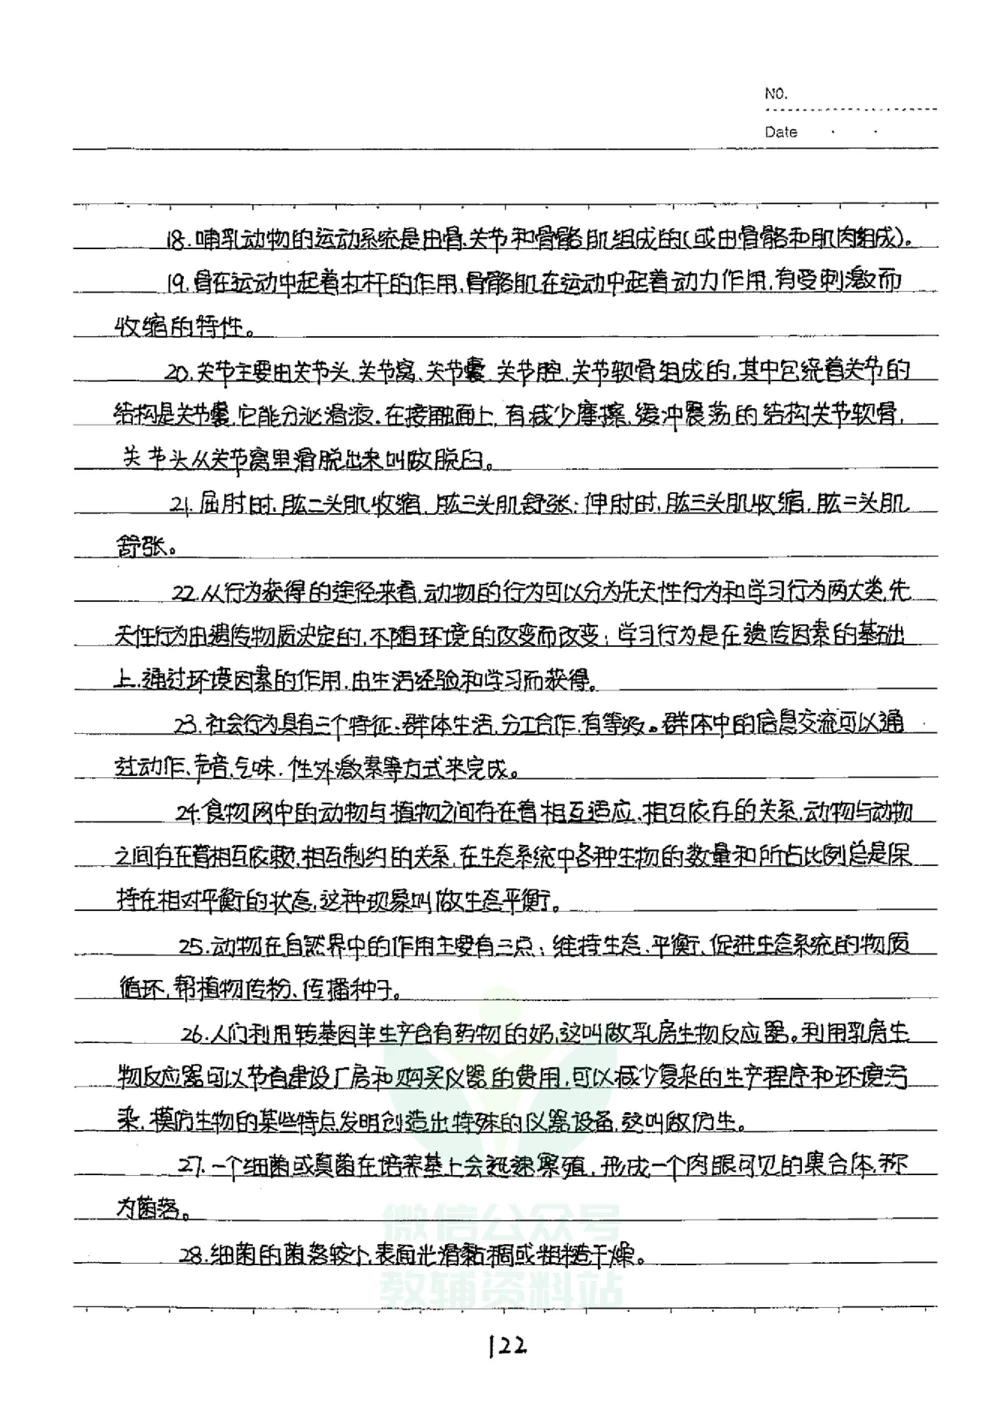 NO.
Date
18.哺乳动物的运动系统是由骨、关节和骨骼肌组成的(或由骨骼和肌肉组成)。
19.骨在运动中起着杠杆的作用,骨骼肌在运动中起着动力作用,有受刺激而
收缩的特性。
20.关节主要由关节头、关节窝、关节囊、关节腔、关节软骨组成的,其中包绕着关节的
结构是关节囊,它能分泌滑液。在接触面上,有减少摩擦,缓冲震荡的结构关节软骨,
关节头从关节窝里滑脱出来叫做脱臼。
21.屈肘时,肱二头肌收缩,肱三头肌舒张;伸肘时,肱三头肌收缩,肱二头肌
舒张。
22.从行为获得的途径来看,动物的行为可以分为先天性行为和学习行为两大类,先
天性行为由遗传物质决定的,不随环境的改变而改变;学习行为是在遗传因素的基础
上,通过环境因素的作用,由生活经验和学习而获得。
23.社会行为具有三个特征:群体生活,分工合作,有等级。群体中的信息交流可以通
过动作、声音、气味、性外激素等方式来完成。
24.食物网中的动物与植物之间存在着相互适应、相互依存的关系,动物与动物
之间存在着相互依赖,相互制约的关系,在生态系统中各种生物的数量和所占比例总是保
持在相对平衡的状态,这种现象叫做生态平衡。
25.动物在自然界中的作用主要有三点:维持生态平衡、促进生态系统的物质
循环,帮植物传粉、传播种子。
26.人们利用转基因羊生产含有药物的奶,这叫做乳房生物反应器。利用乳房生
物反应器可以节省建设厂房和购买仪器的费用,可以减少复杂的生产程序和环境污
染,模仿生物的某些特点发明创造出特殊的仪器设备,这叫做仿生。
27.一个细菌或真菌在培养基上会迅速繁殖,形成一个肉眼可见的集合体,称
为菌落。
28.细菌的菌落较小,表面光滑黏稠或粗糙干燥。
微信公众号
教辅资料站
122